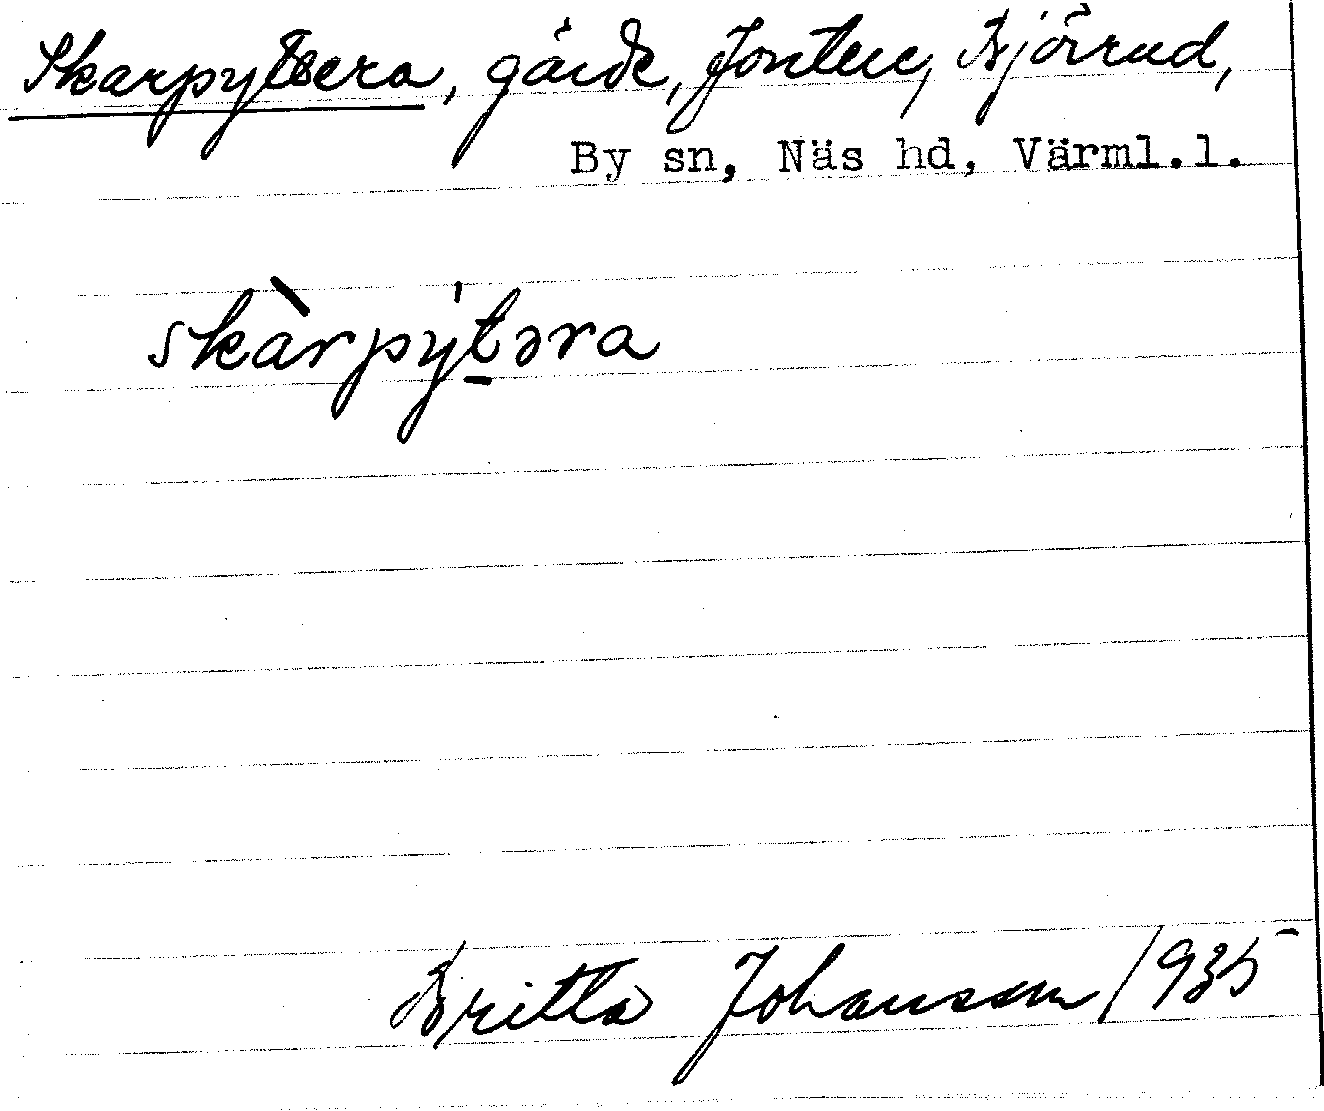 Skarpyttera, gärde, Jonten, Björrud,
By sn, Näs hd, Värml.l.
skàrpýtəra
Britta Johansson 1935